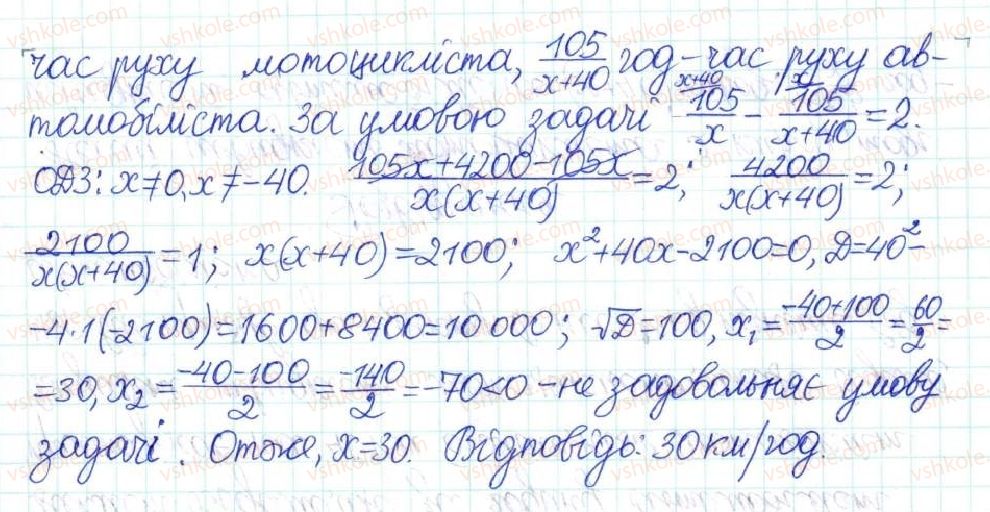 час руху мотоцикліста, 105/(x+40) год – час руху ав-
томобіліста. За умовою задачі 105/x – 105/(x+40) = 2.
ОДЗ: x≠0, x≠-40. (105x+4200-105x)/(x(x+40)) = 2; 4200/(x(x+40)) = 2;
2100/(x(x+40)) = 1; x(x+40)=2100; x²+40x-2100=0, D=40²-
-4·1(-2100)=1600+8400=10000; √D=100, x₁=(-40+100)/2=60/2=
=30, x₂=(-40-100)/2=-140/2=-70<0 – не задовольняє умову
задачі. Отже, x=30. Відповідь: 30 км/год.